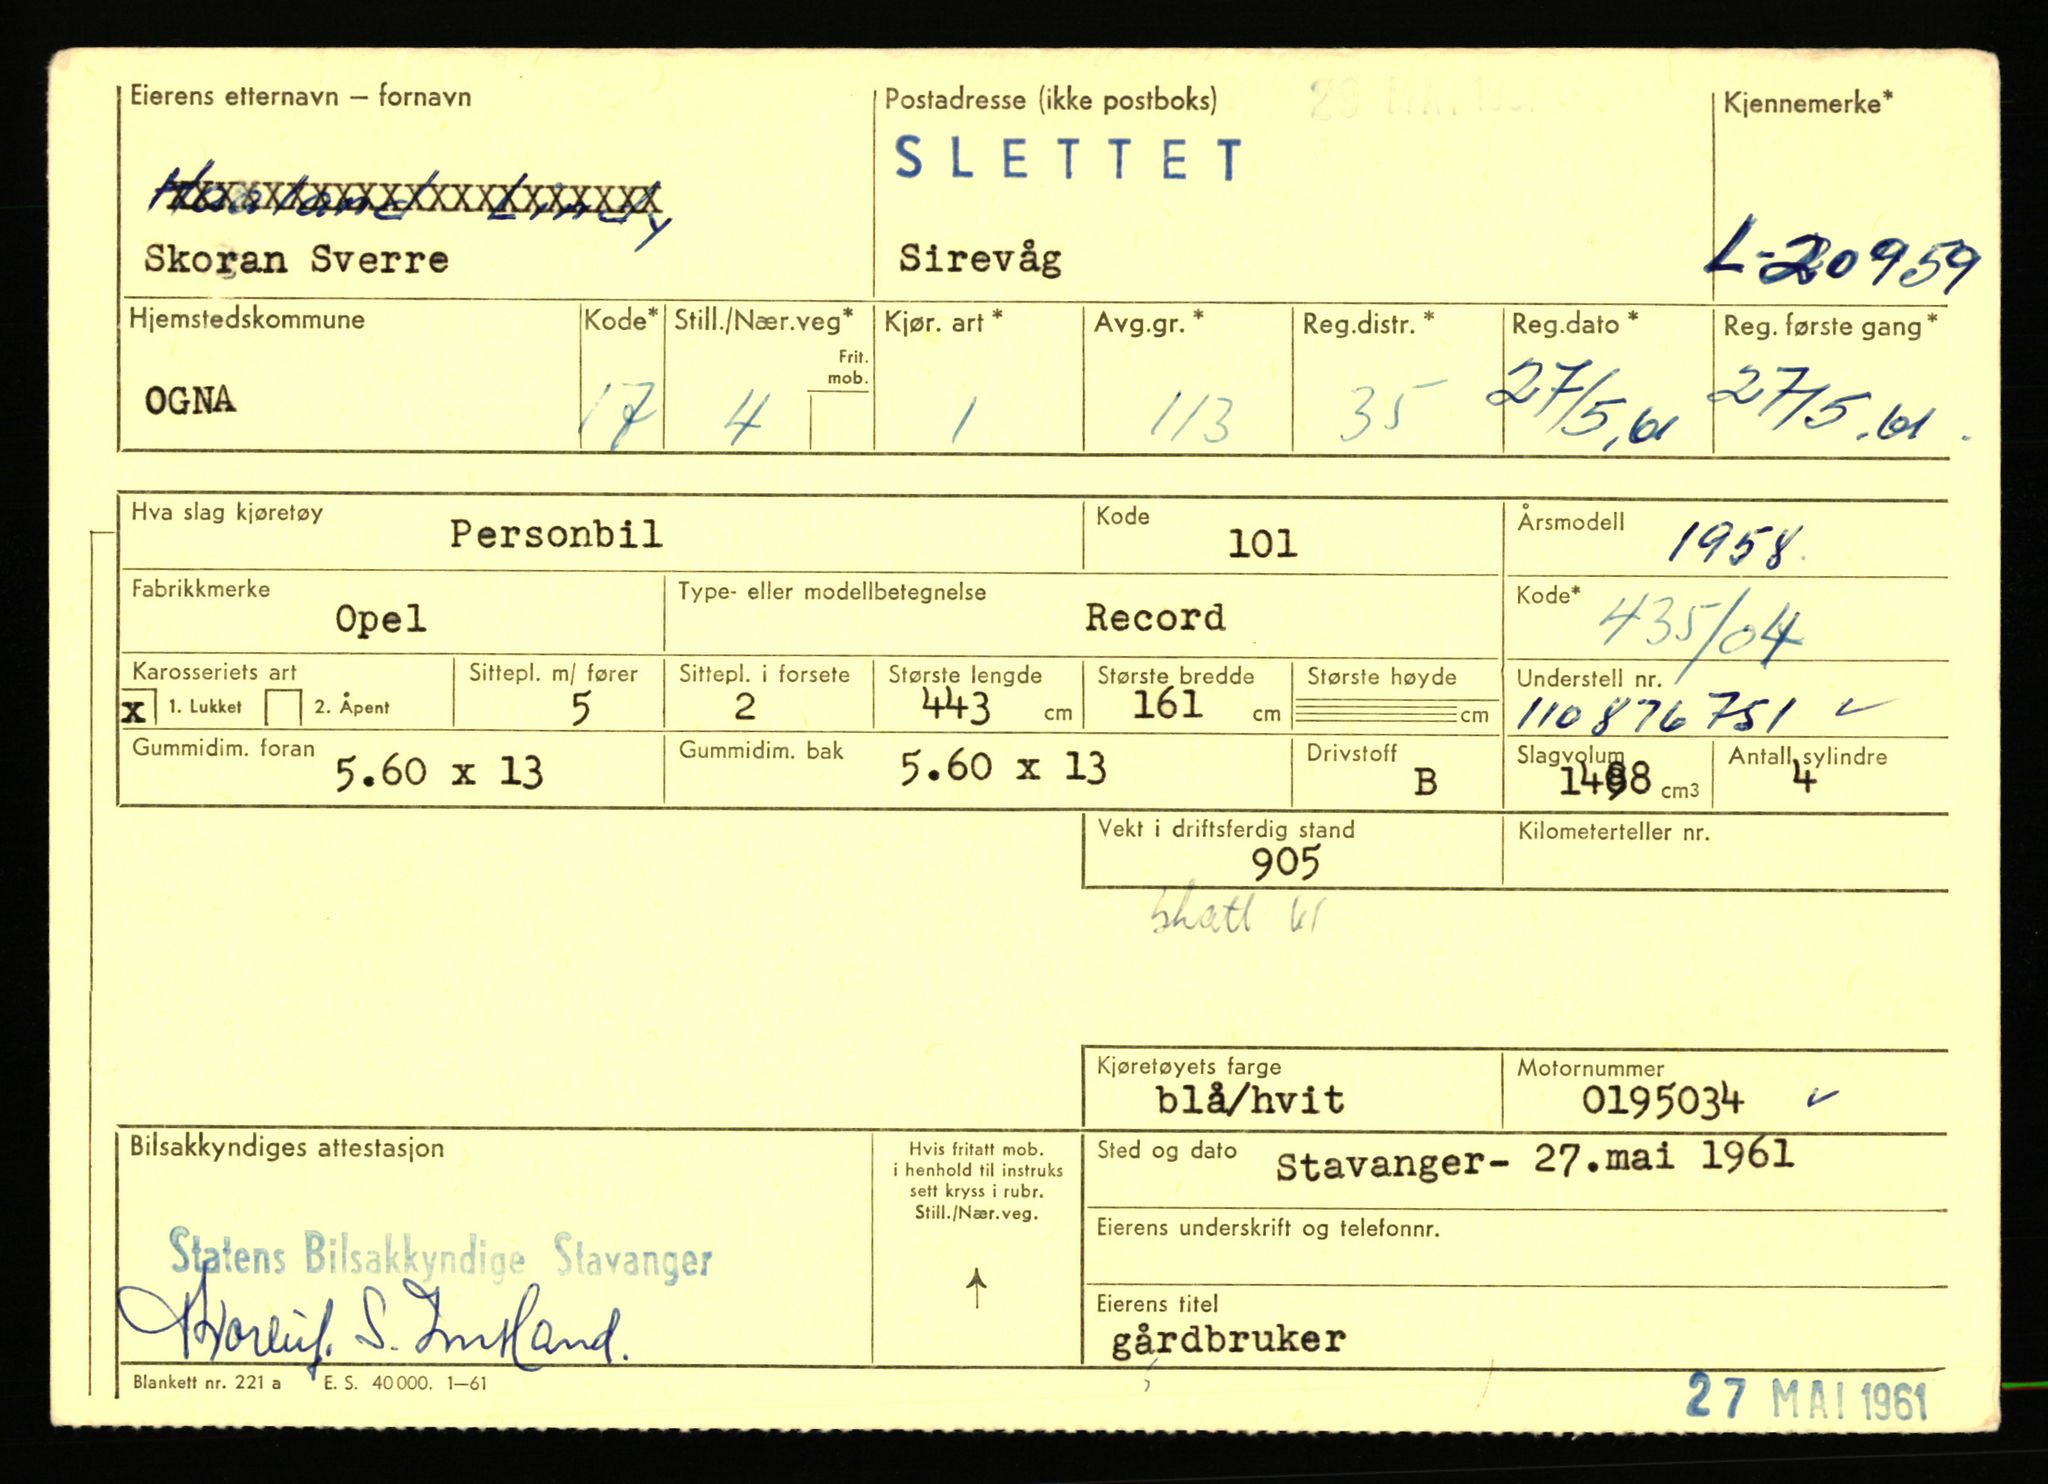 Eierens etternavn — fornavn
Postadresse (ikke postboks)
Kjennemerke*
SLETTET
Skoran Sverre
Sirevåg
L-20959
Hjemstedskommune
Kode*
Still./Nær.veg*
Frit. mob.
Kjør. art *
Avg.gr. *
Reg.distr. *
Reg.dato *
Reg. første gang*
OGNA
17
4
1
113
35
27/5.61
27/5.61.
Hva slag kjøretøy
Personbil
Kode
101
Årsmodell
1958.
Fabrikkmerke
Opel
Type- eller modellbetegnelse
Record
Kode*
435/04
Karosseriets art
x 1. Lukket 2. Åpent
Sittepl. m/ fører
5
Sittepl. i forsete
2
Største lengde
443 cm
Største bredde
161 cm
Største høyde
cm
Understell nr.
110876751
Gummidim. foran
5.60 x 13
Gummidim. bak
5.60 x 13
Drivstoff
B
Slagvolum
cm3
Antall sylindre
4
Vekt i driftsferdig stand
905
Kilometerteller nr.
skatt 61
Kjøretøyets farge
blå/hvit
Motornummer
0195034
Bilsakkyndiges attestasjon
Hvis fritatt mob.
i henhold til instruks
sett kryss i rubr.
Still./Nær.veg.
Sted og dato
Stavanger- 27.mai 1961
Eierens underskrift og telefonnr.
Statens Bilsakkyndige Stavanger
Eierens titel
gårdbruker
Blankett nr. 221 a E. S. 40 000. 1—61
27 MAI 1961